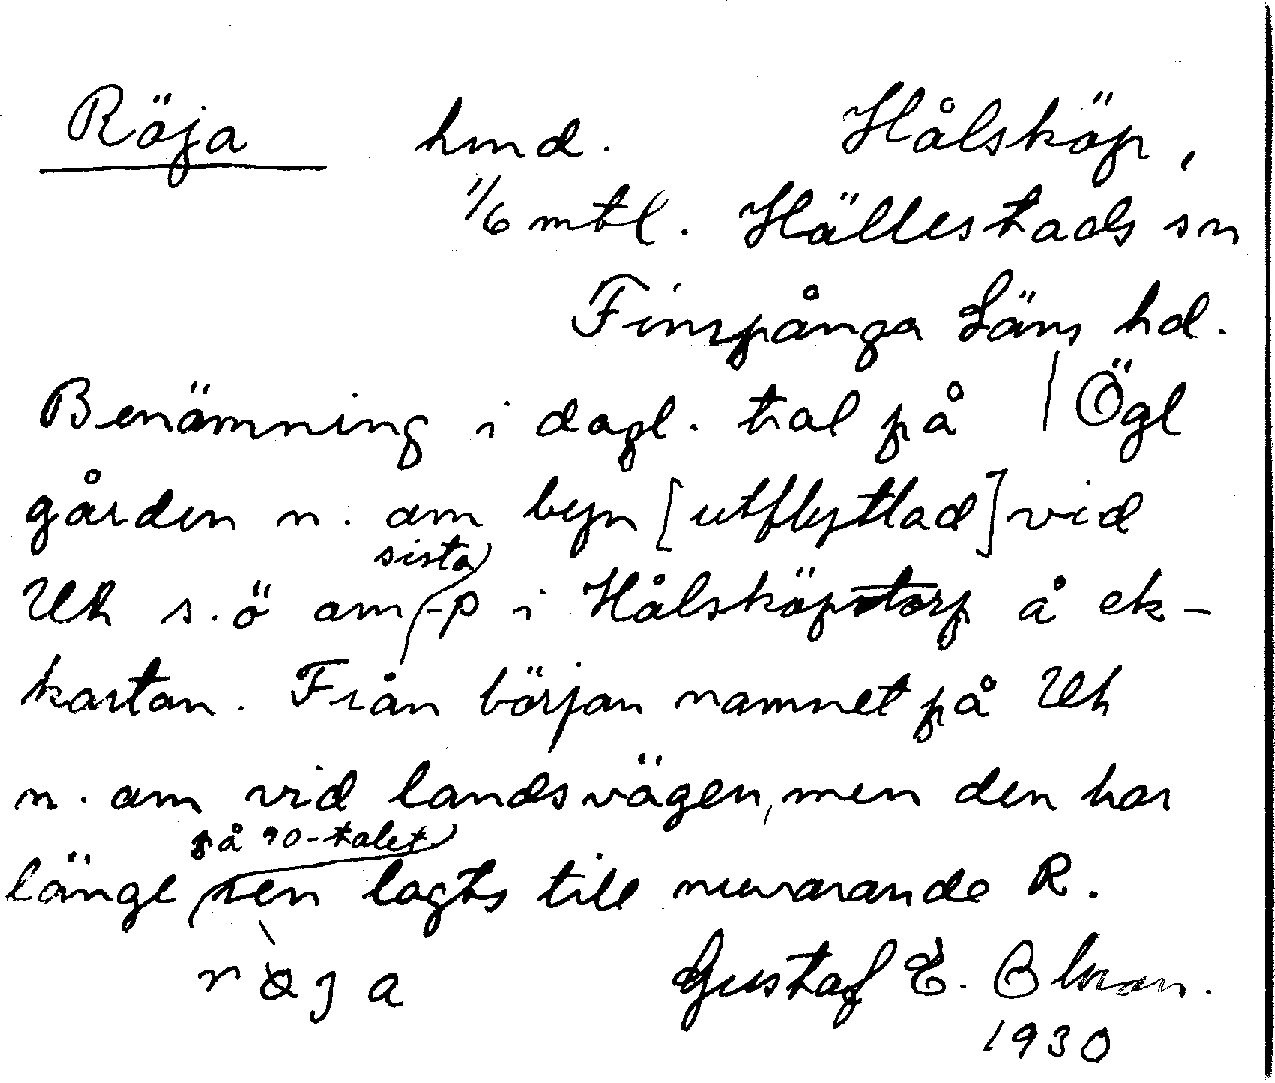 Röja hmd. Hålsköp,
1/6 mtl. Hällestads sn
Finspånga Läns hd.
Benämning i dagl. tal på | Ögl
gården n. om byn [utflyttad] vid
Uh s.ö om sista -p i Hålsköpstorp å ek-
kartan. Från början namnet på Uh
n. om vid landsvägen, men den har
på 90-talet
länge sen lagts till nuvarande R.
röja Gustaf E. Olson.
1930